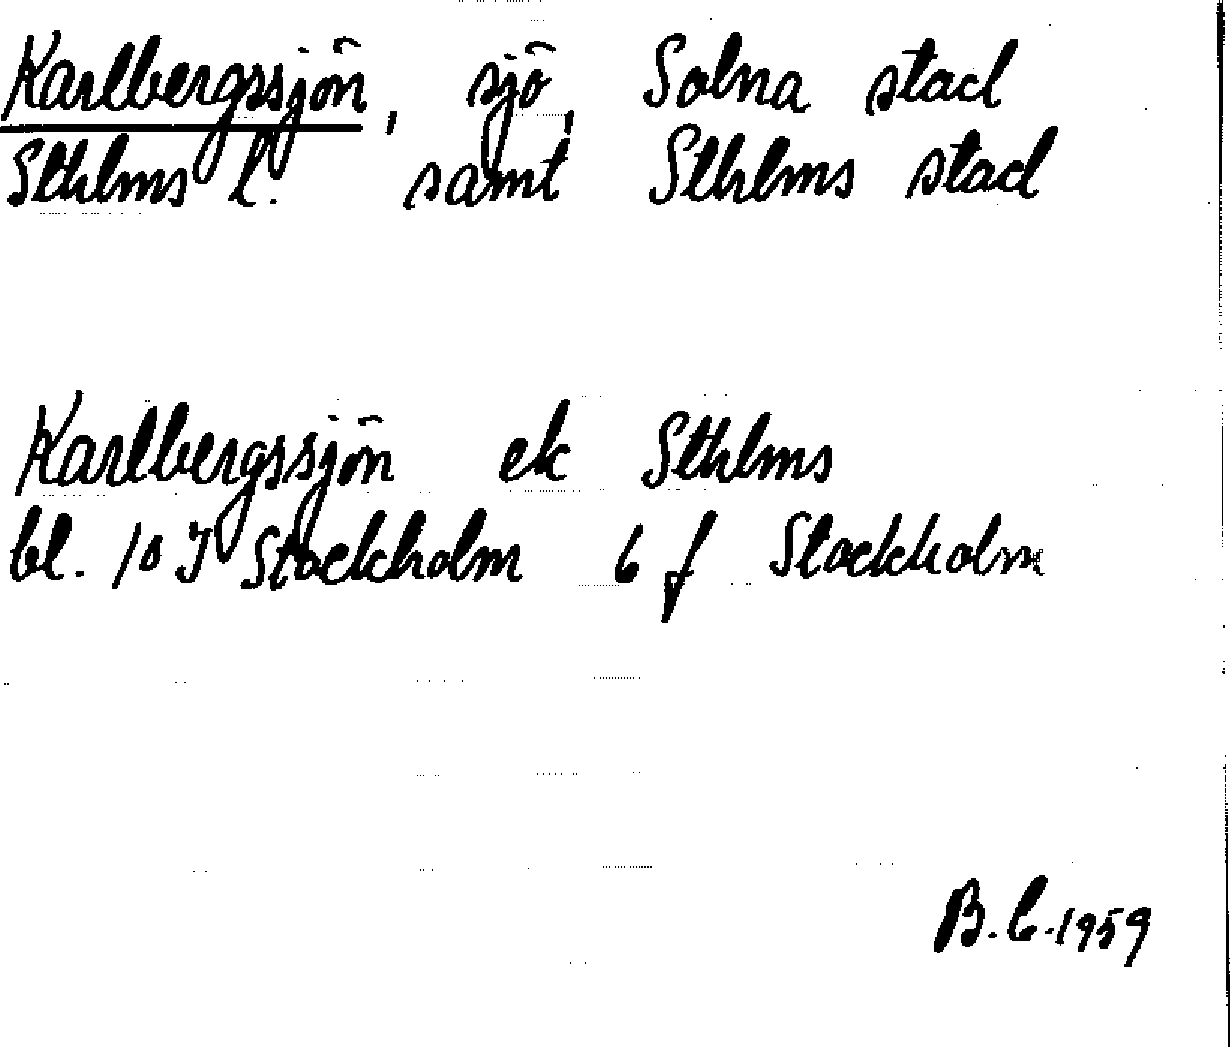 Karlbergssjön, sjö, Solna stad
Sthlms l. samt Sthlms stad
Karlbergssjön ek Sthlms
bl. 10 I Stockholm 6 f Stockholm
B.C. 1959